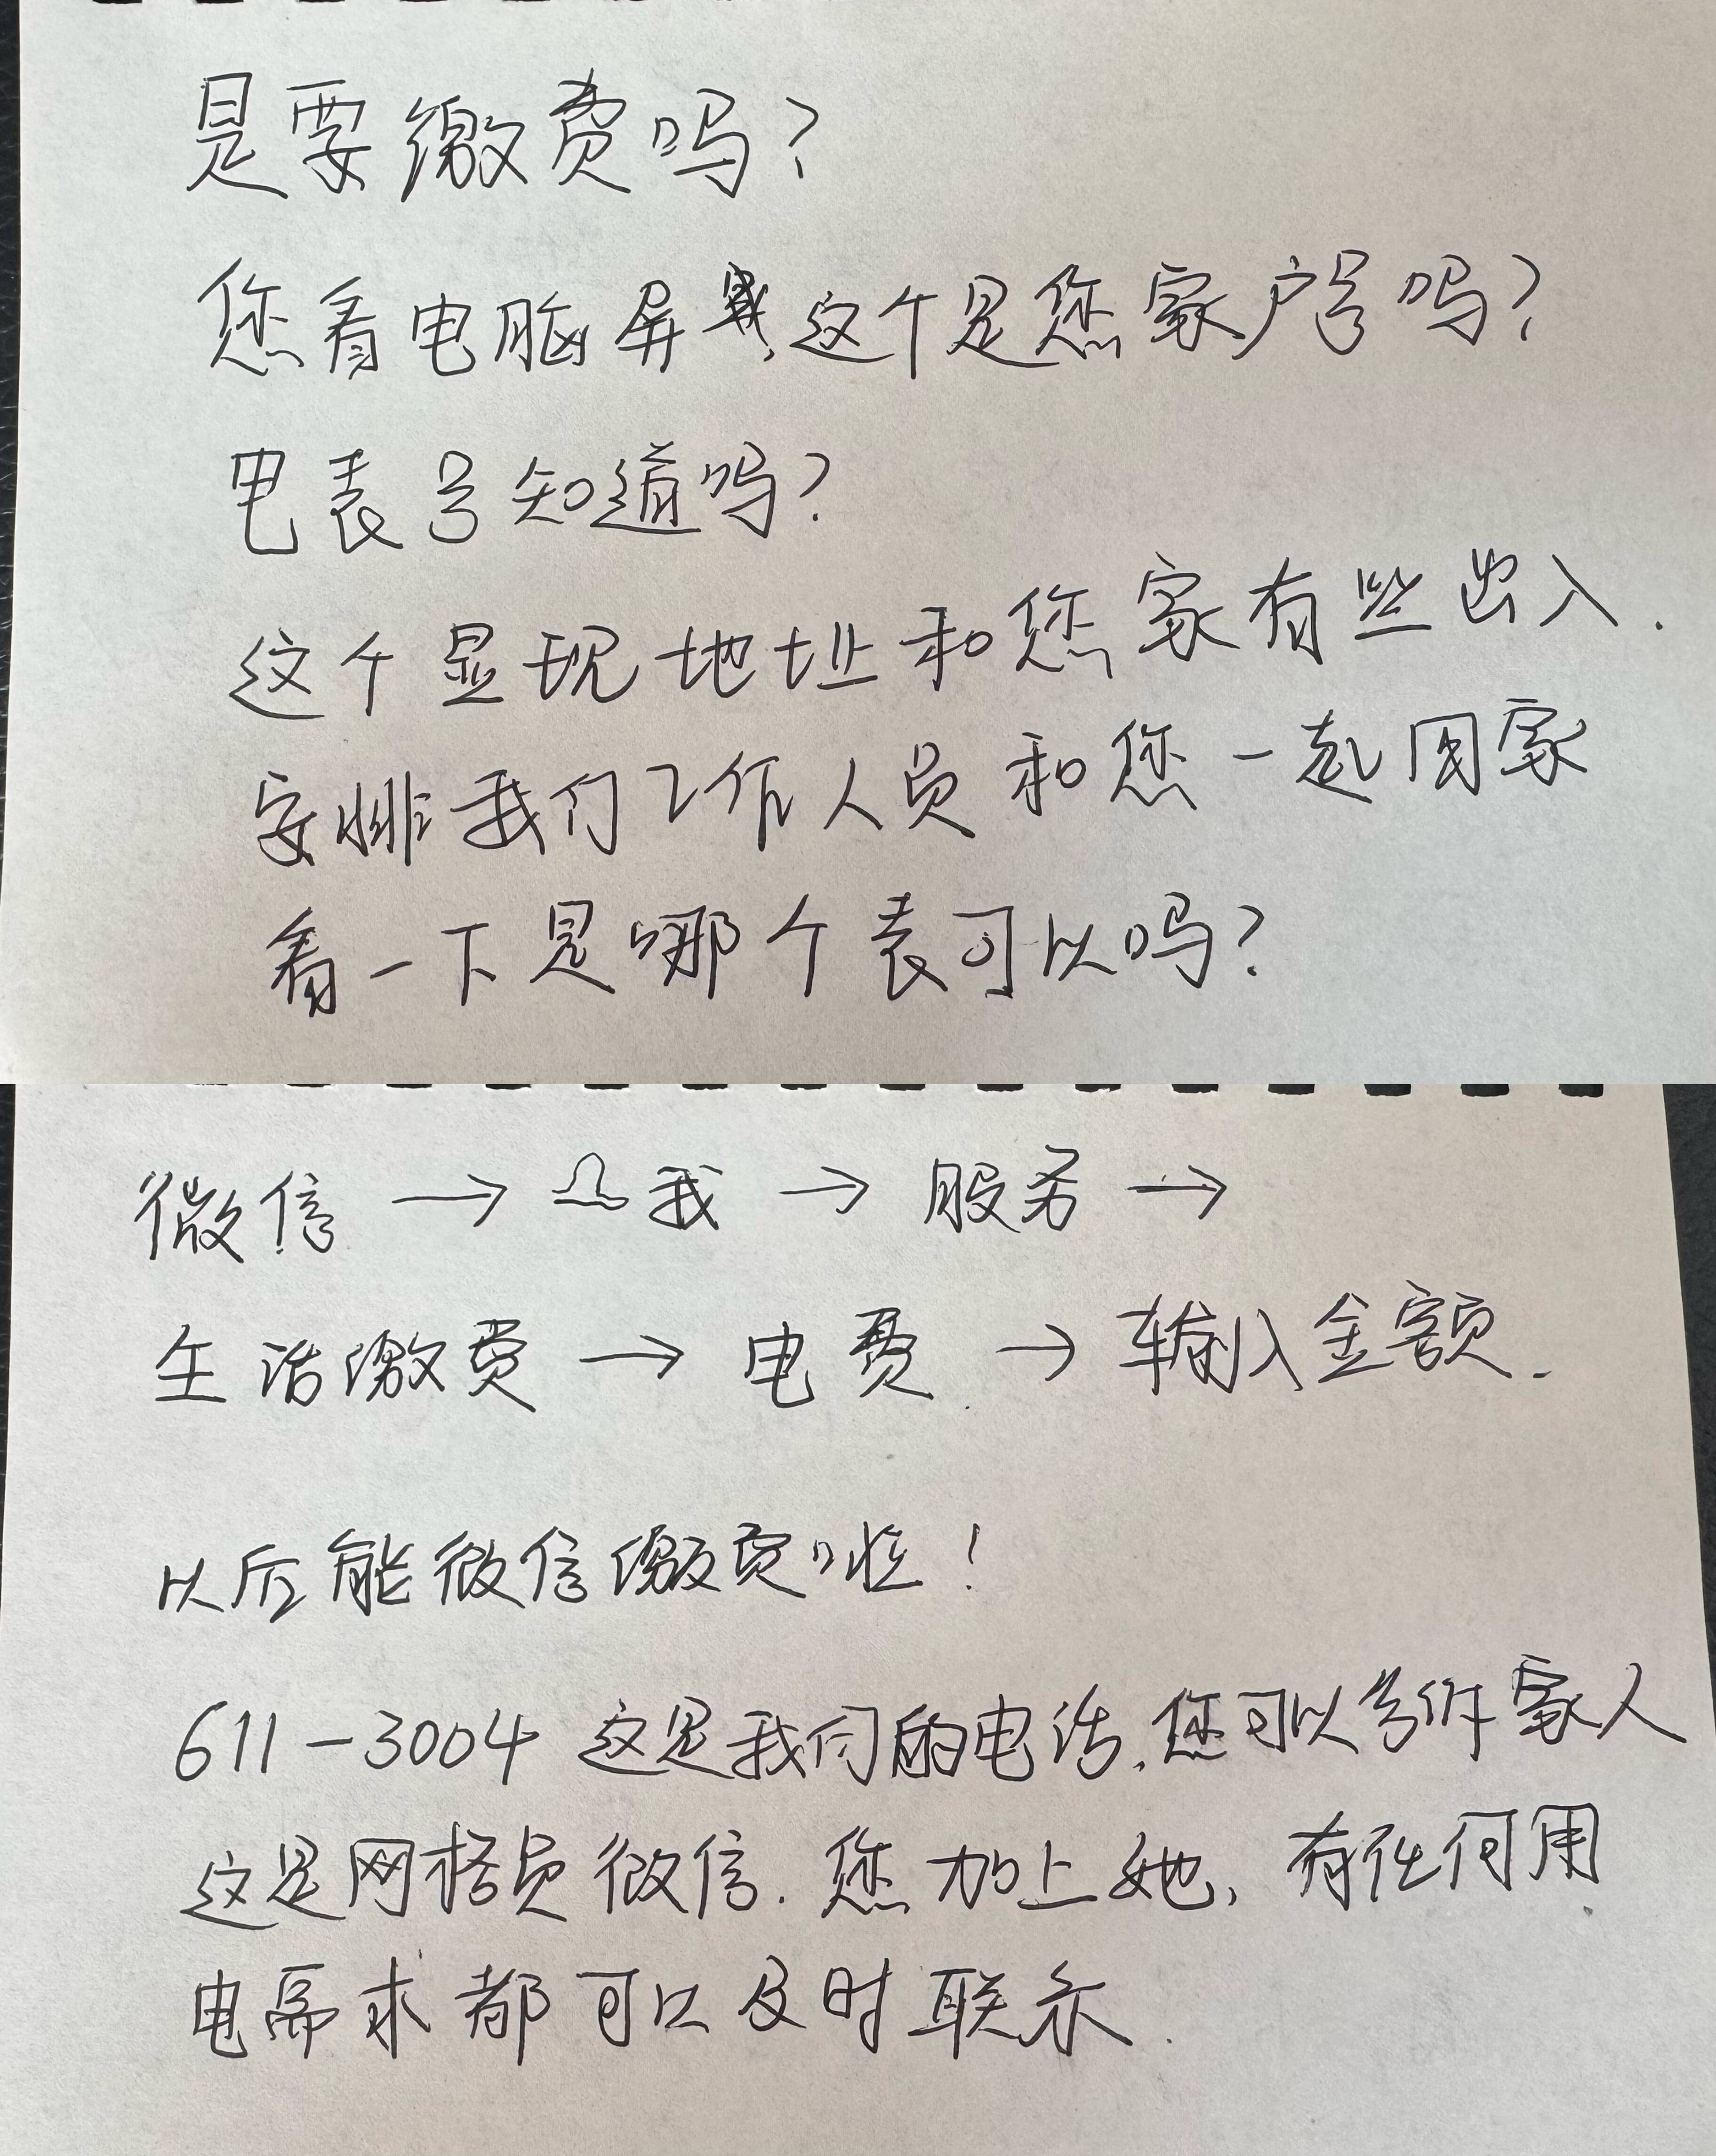 是要缴费吗？
您看电脑屏幕，这个是您家户号吗？
电表号知道吗？
这个显现地址和您家有些出入.
安排我们工作人员和您一起回家
看一下是哪个表可以吗？
微信 → 我 → 服务 →
生活缴费 → 电费 → 输入金额.
以后能微信缴费啦！
611-3004 这是我们的电话,您可以告诉家人
这是网格员微信. 您加上她, 有任何用
电需求都可以及时联系.